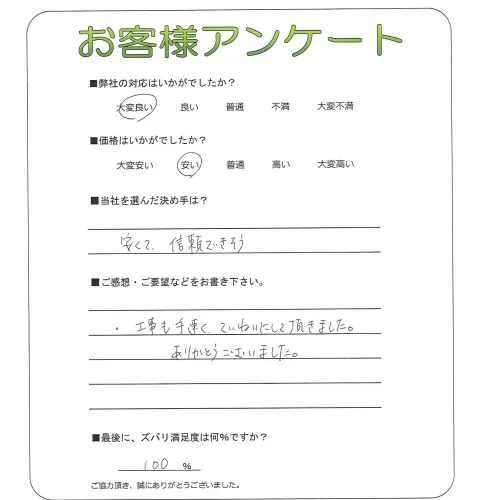 お客様アンケート
■弊社の対応はいかがでしたか？
大変良い 良い 普通 不満 大変不満
■価格はいかがでしたか？
大変安い 安い 普通 高い 大変高い
■当社を選んだ決め手は？
安くて、信頼できそう
■ご感想・ご要望などをお書き下さい。
・工事も手速く、ていねいにして頂きました。
ありがとうございました。
■最後に、ズバリ満足度は何%ですか？
100 %
ご協力頂き、誠にありがとうございました。